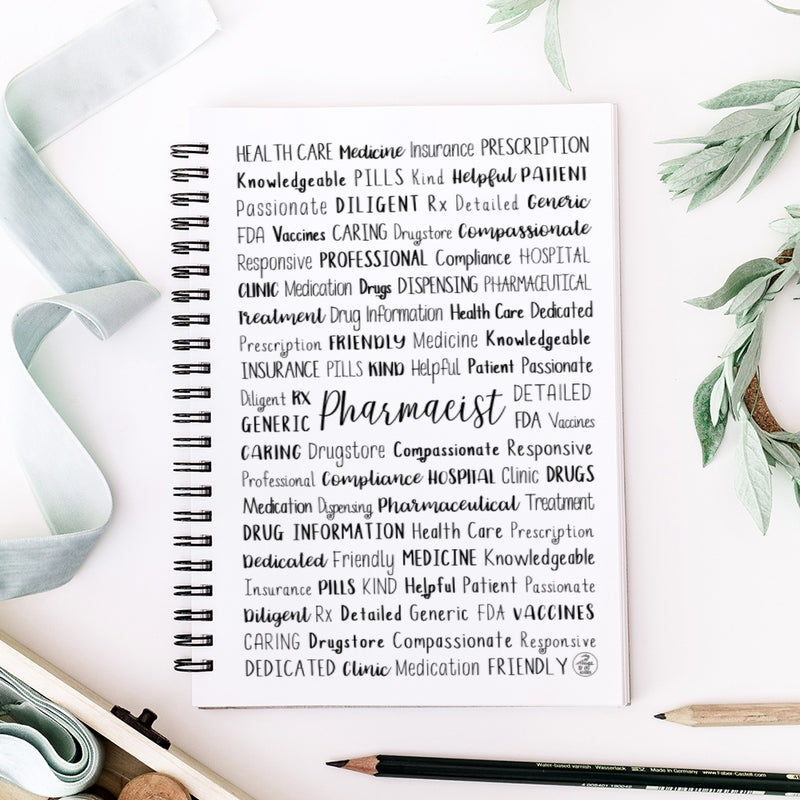 HEALTH CARE Medicine Insurance PRESCRIPTION
Knowledgeable PILLS Kind Helpful PATIENT
Passionate DILIGENT Rx Detailed Generic
FDA Vaccines CARING Drugstore Compassionate
Responsive PROFESSIONAL Compliance HOSPITAL
CLINIC Medication Drugs DISPENSING PHARMACEUTICAL
Treatment Drug Information Health Care Dedicated
Prescription FRIENDLY Medicine Knowledgeable
INSURANCE PILLS KIND Helpful Patient Passionate
Diligent RX
GENERIC
Pharmacist
DETAILED
FDA Vaccines
CARING Drugstore Compassionate Responsive
Professional Compliance HOSPITAL Clinic DRUGS
Medication Dispensing Pharmaceutical Treatment
DRUG INFORMATION Health Care Prescription
Dedicated Friendly MEDICINE Knowledgeable
Insurance PILLS KIND Helpful Patient Passionate
Diligent Rx Detailed Generic FDA VACCINES
CARING Drugstore Compassionate Responsive
DEDICATED Clinic Medication FRIENDLY
Water-based varnish Wasserlack Made in Germany www.Faber-Castell.com